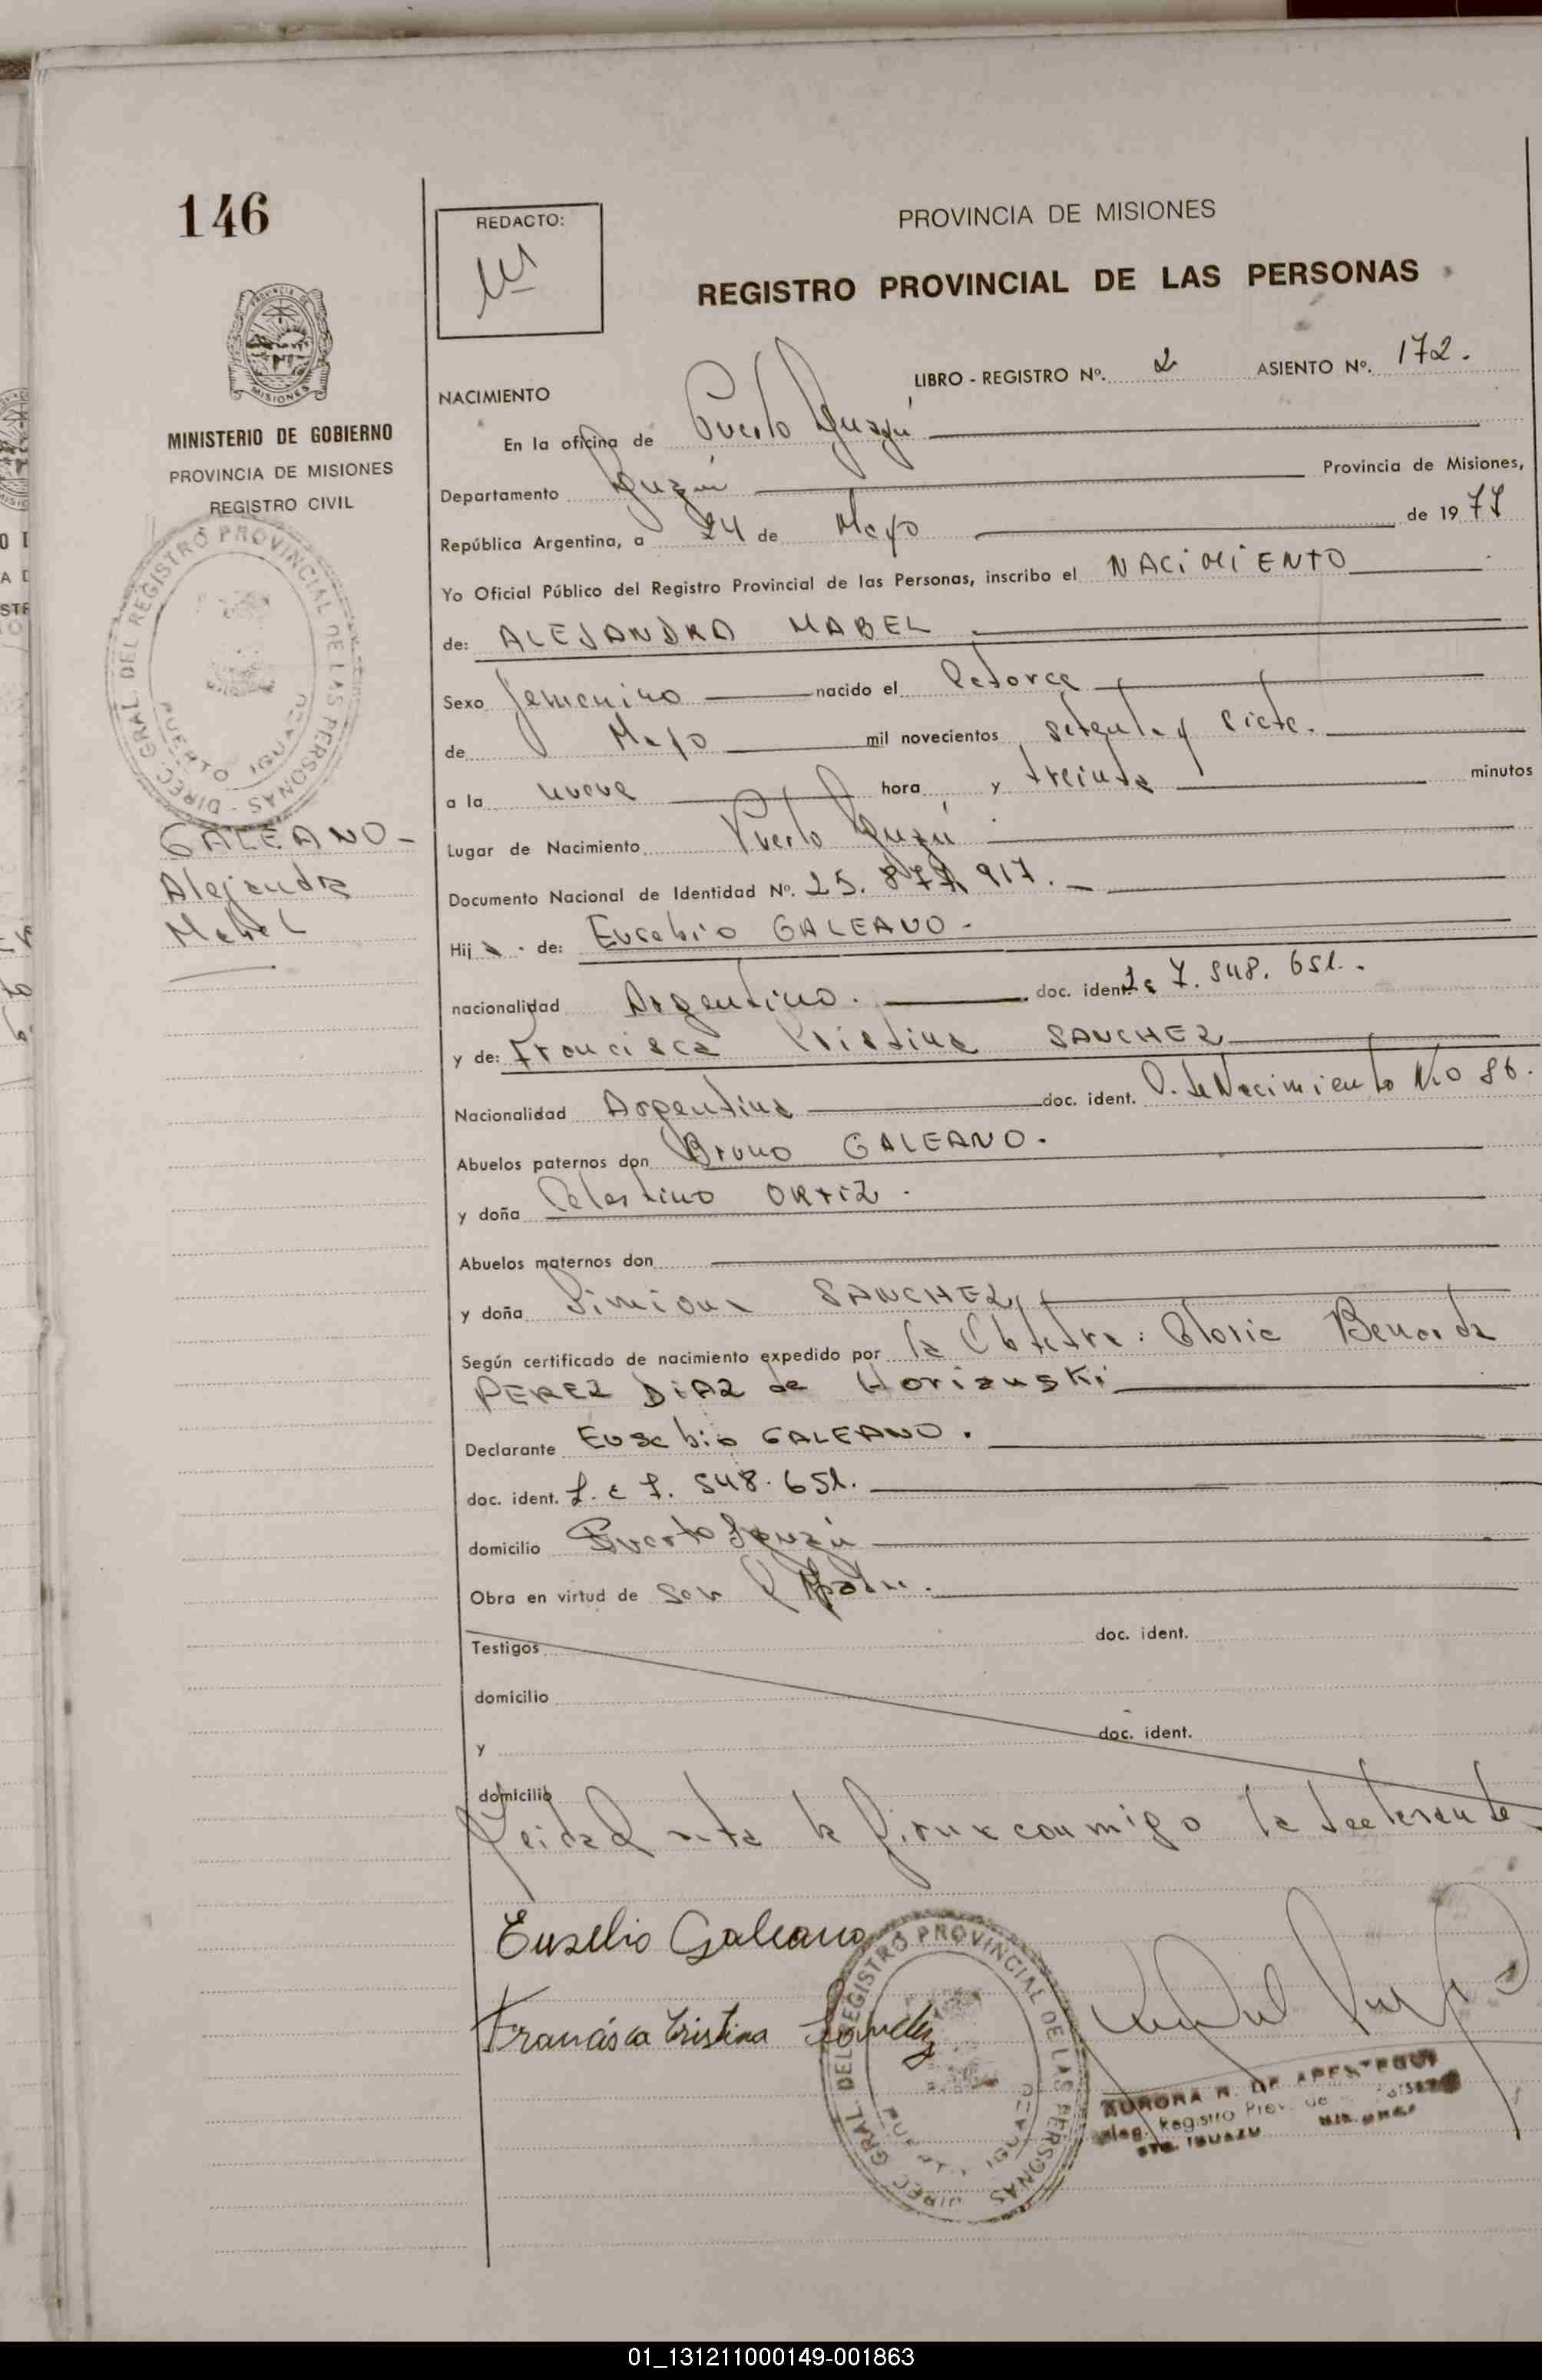 146
REDACTO:
PROVINCIA DE MISIONES
REGISTRO PROVINCIAL DE LAS PERSONAS
PROVINCIA DE
MISIONES
MINISTERIO DE GOBIERNO
PROVINCIA DE MISIONES
REGISTRO CIVIL
DIREC. GRAL. DEL REGISTRO PROVINCIAL DE LAS PERSONAS
PUERTO IGUAZU
GALEANO -
Alejandra
Mabel
NACIMIENTO LIBRO - REGISTRO Nº. 2 ASIENTO Nº. 172.
En la oficina de Puerto Iguazú
Departamento Iguazú Provincia de Misiones,
República Argentina, a 24 de Mayo de 1977
Yo Oficial Público del Registro Provincial de las Personas, inscribo el NACIMIENTO
de: ALEJANDRA MABEL
Sexo femenino nacido el catorce
de Mayo mil novecientos setenta y siete.
a la nueve hora y treinta minutos
Lugar de Nacimiento Puerto Iguazú
Documento Nacional de Identidad Nº. 25. 917.
Hij a - de: Eusebio GALEANO -
nacionalidad Argentino. doc. ident. 7. 548. 651.
y de: Francisca Cristina SANCHEZ
Nacionalidad Argentina doc. ident. de Nacimiento Nro 86.
Abuelos paternos don Bruno GALEANO.
y doña Celestina ORTIZ.
Abuelos maternos don
y doña SANCHEZ
Según certificado de nacimiento expedido por la Obstetra: Gloria
PEREZ DIAZ de
Declarante Eusebio GALEANO.
doc. ident. L. E 7. 548. 651.
domicilio Puerto Iguazú
Obra en virtud de ser el Padre.
Testigos doc. ident.
domicilio
y doc. ident.
domicilio
Leida el acta la firma conmigo la declarante
Eusebio Galeano
Francisca Cristina Sanchez
DIREC. GRAL. DEL REGISTRO PROVINCIAL DE LAS PERSONAS
PUERTO IGUAZU
AURORA DE APESTEGUI
Deleg. Registro Prov. de
PTO. IGUAZU MISIONES
01_131211000149-001863